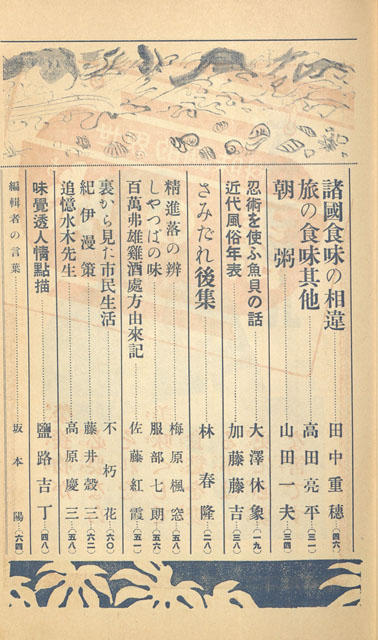 諸國食味の相違 田中重穂(四六)
旅の食味其他 高田亮平(三一)
朝粥 山田一夫(三四)
忍術を使ふ魚貝の話 大澤休象(一九)
近代風俗年表 加藤藤吉(三八)
さみだれ後集 林春隆(二八)
精進落の辨 梅原楓窓(五八)
しやつぱの味 服部七朗(五六)
百萬弗雄雞酒處方由來記 佐藤紅霞(五一)
裏から見た市民生活 不朽花(六〇)
紀伊漫策 藤井殼三(六二)
追憶水木先生 高原慶三(五八)
味覺透人情點描 鹽路吉丁(四八)
編輯者の言葉 坂本陽(六四)